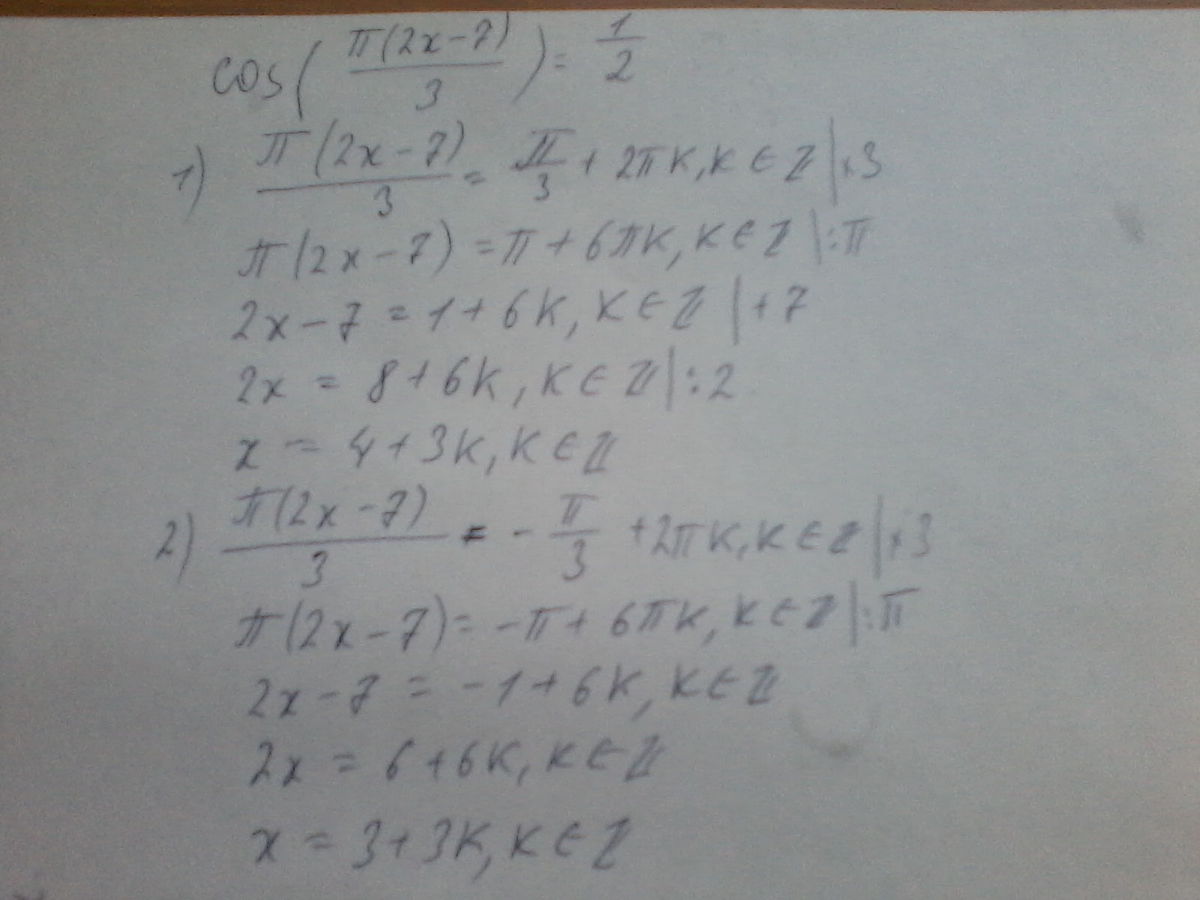 cos(π(2x-7)/3) = 1/2
1) π(2x-7)/3 = π/3 + 2πk, k ∈ Z |×3
π(2x-7) = π + 6πk, k ∈ Z |:π
2x-7 = 1+6k, k ∈ Z |+7
2x = 8+6k, k ∈ Z |:2
x = 4+3k, k ∈ Z
2) π(2x-7)/3 = -π/3 + 2πk, k ∈ Z |×3
π(2x-7) = -π + 6πk, k ∈ Z |:π
2x-7 = -1+6k, k ∈ Z
2x = 6+6k, k ∈ Z
x = 3+3k, k ∈ Z